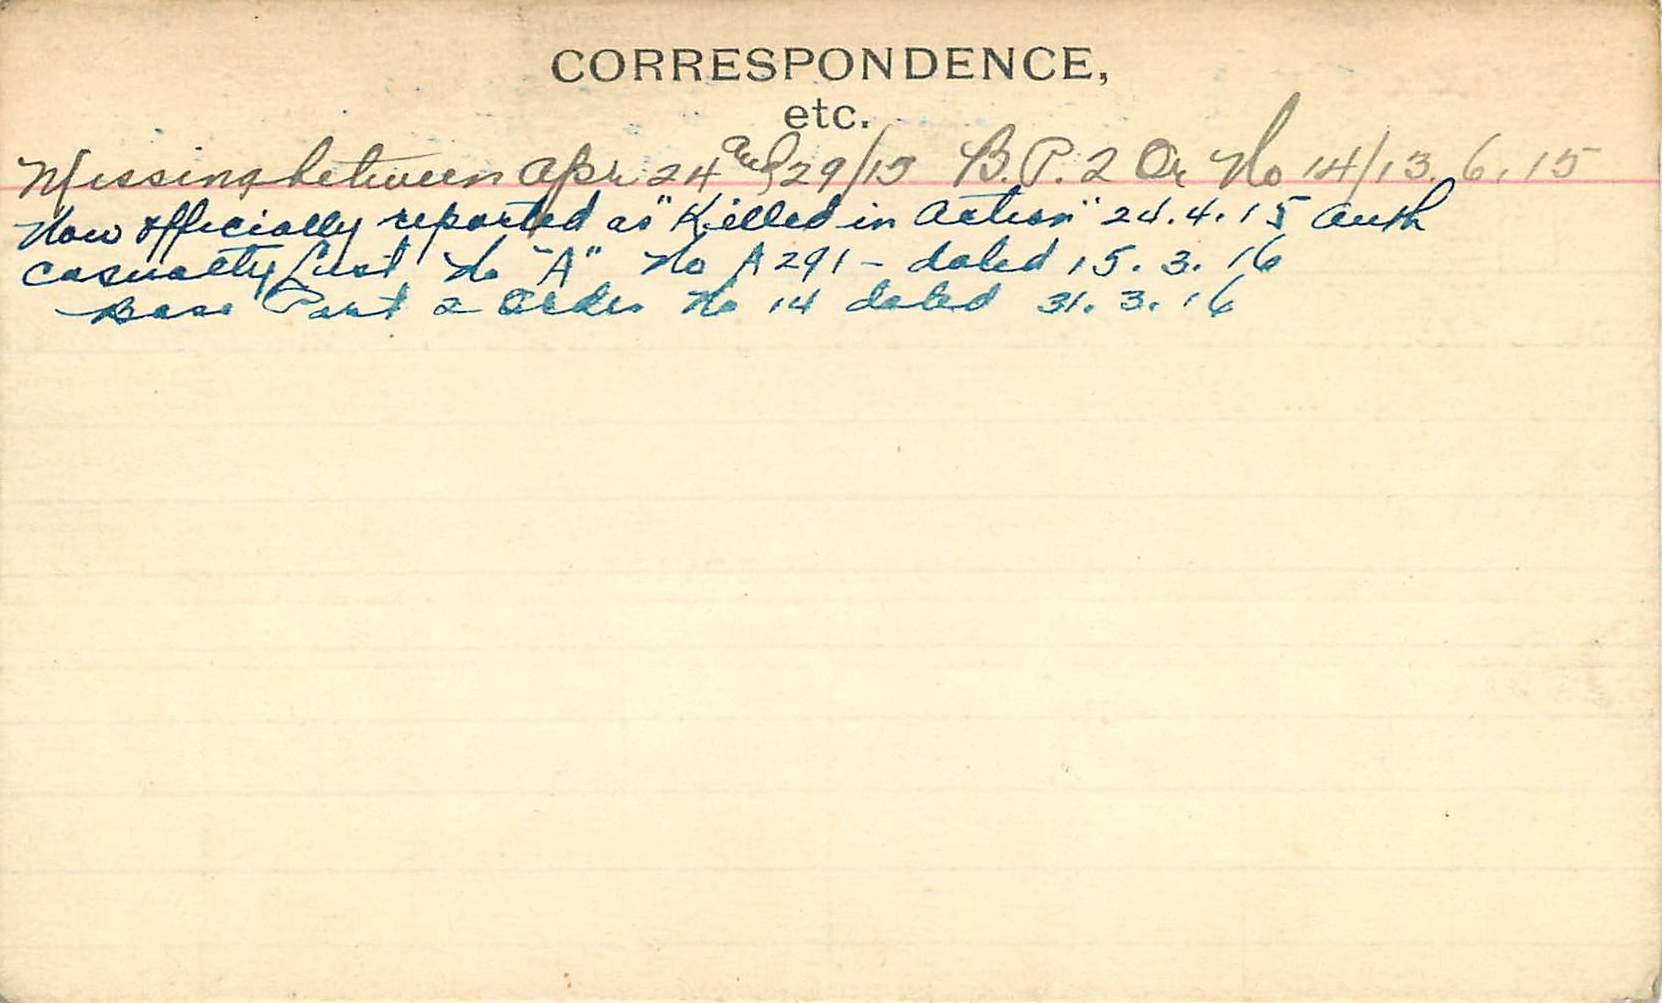 CORRESPONDENCE,
etc.
Missing between Apr 24 and 29/15 B.P. 2 Or No 14/13.6.15
Now officially reported as "Killed in Action" 24.4.15 Auth
Casualty List No "A" No A291 - dated 15.3.16
Base Part 2 Order No 14 dated 31.3.16